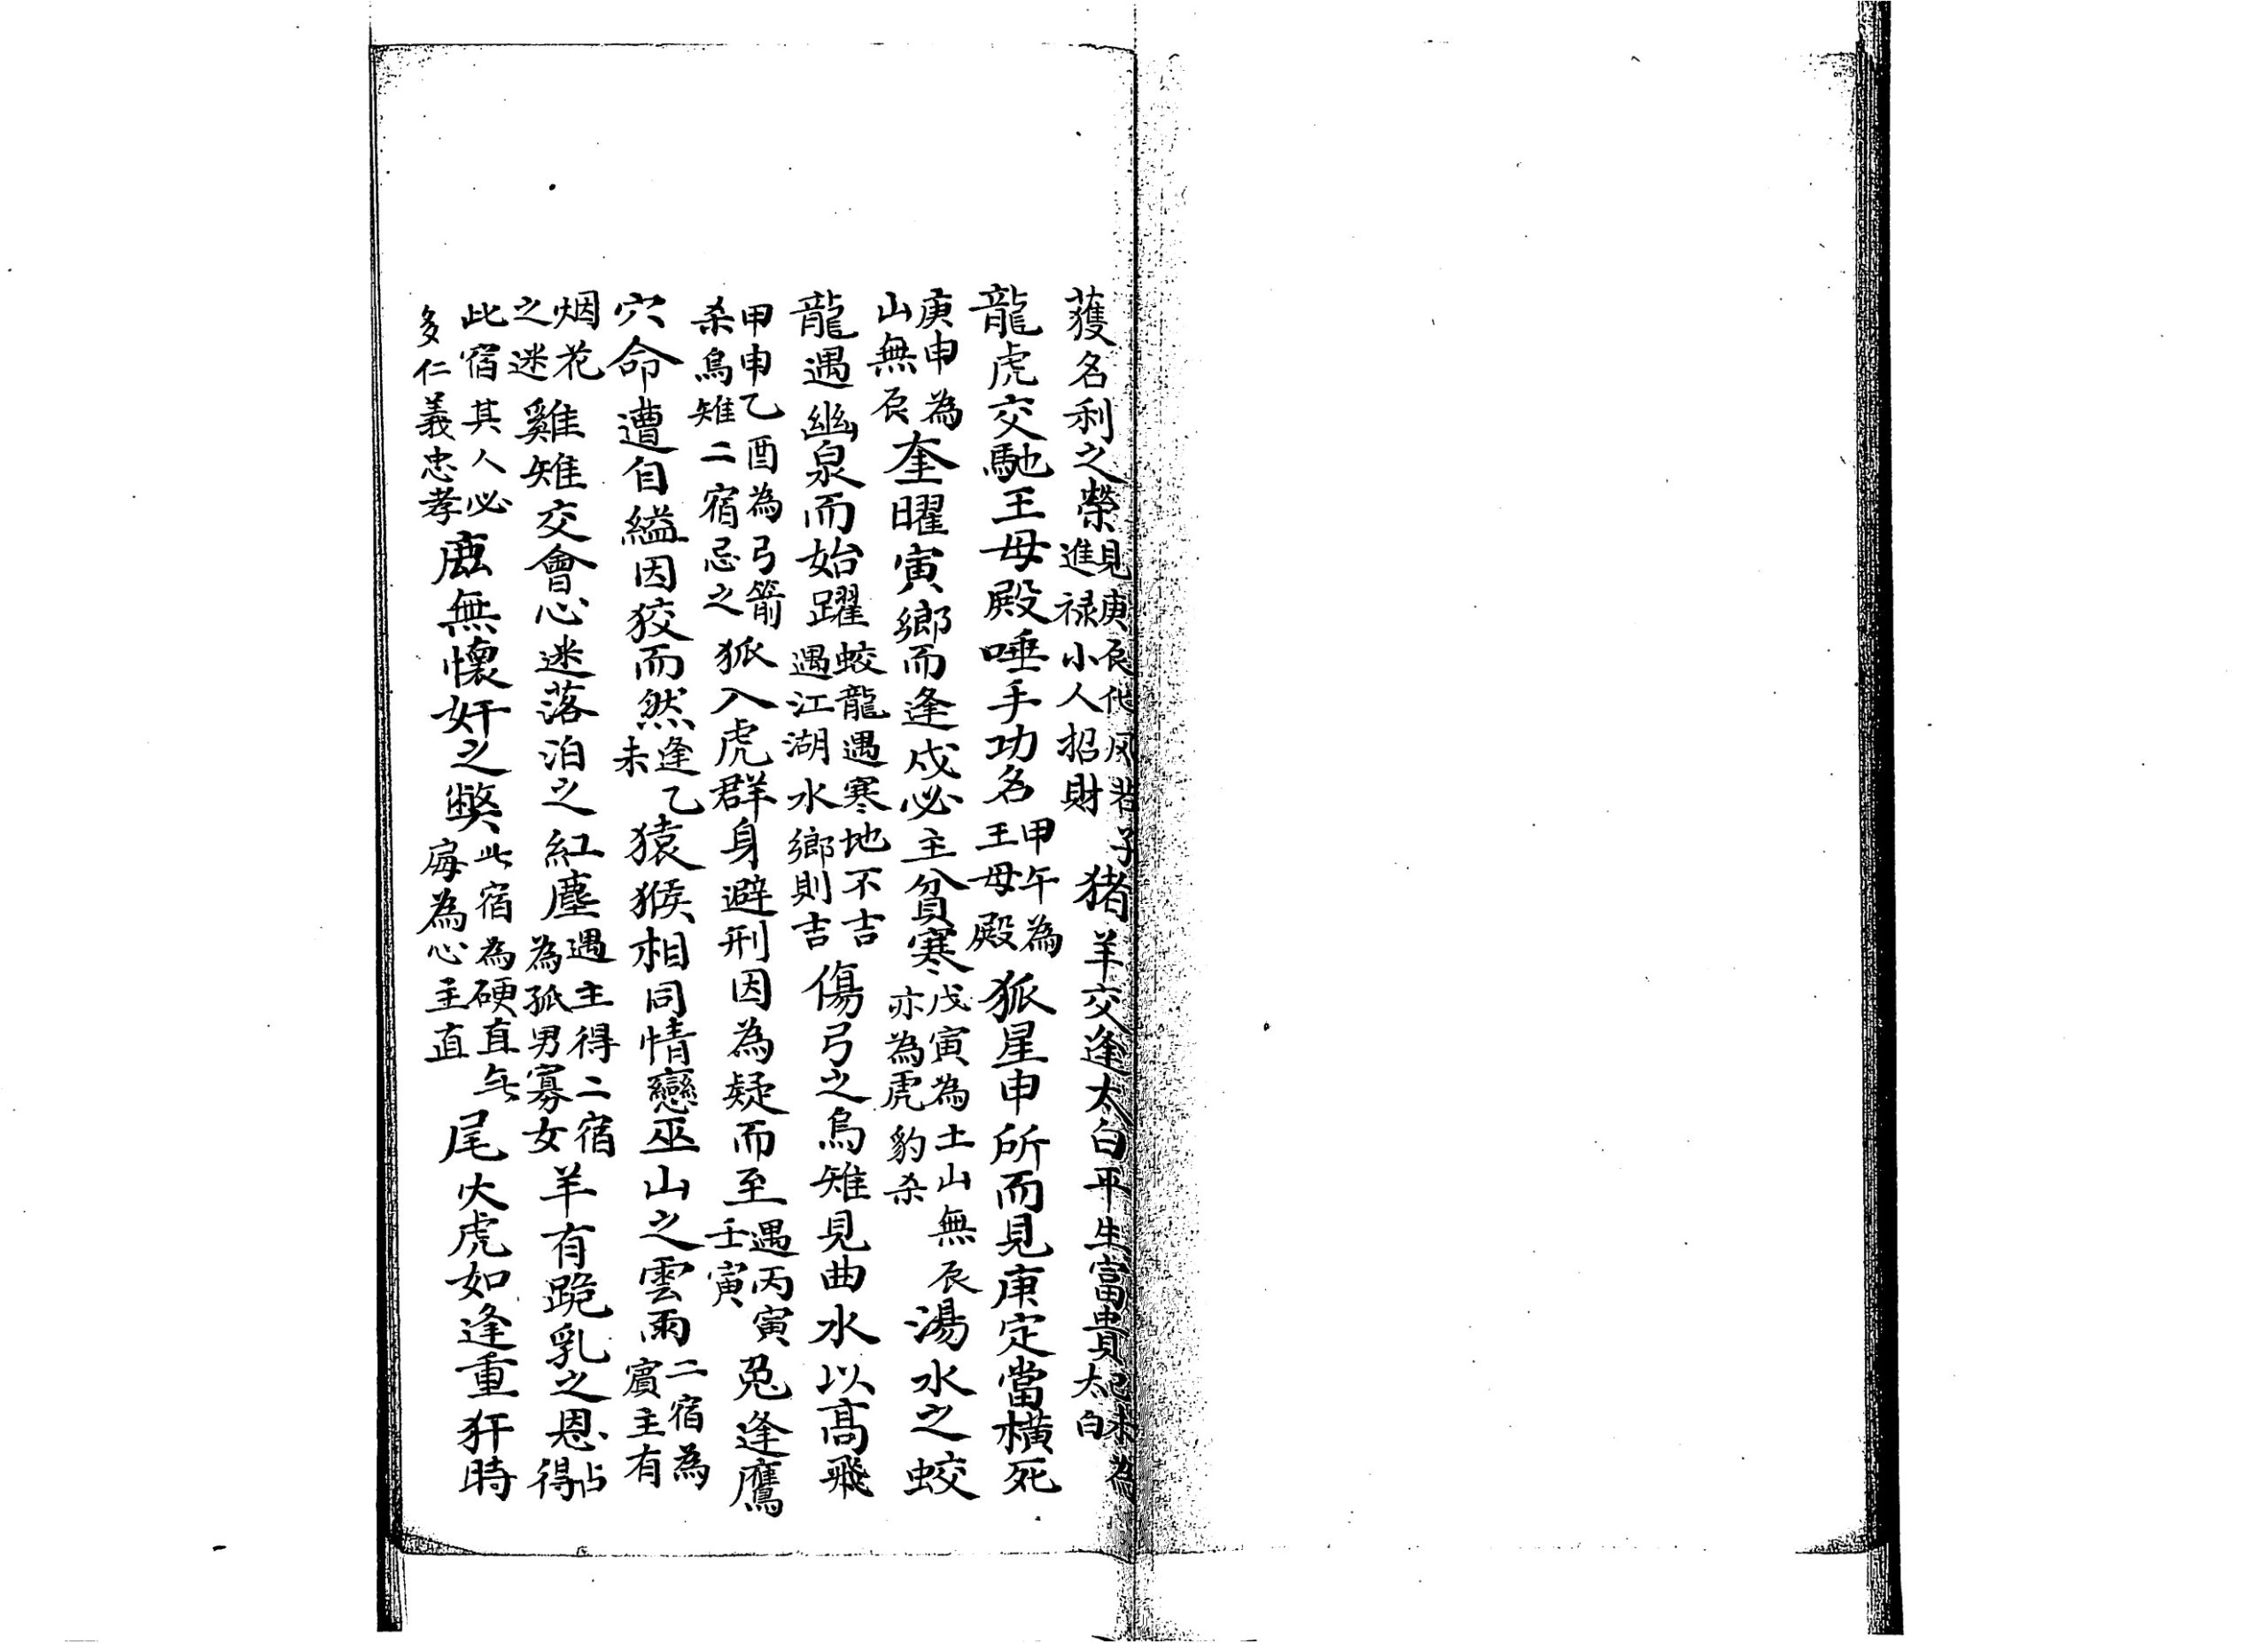 獲名利之榮見庚辰化风君子進禄小人招財猪羊交逢太白平生富貴己未為太白
龍虎交馳王母殿唾手功名甲午為王母殿狐星申所而見庚定當横死
庚申為山無辰奎曜寅鄉而逢戍必主貧寒戊寅為土山無辰亦為虎豹杀湯水之蛟
龍遇幽泉而始躍蛟龍遇寒地不吉遇江湖水鄉則吉傷弓之烏雉見曲水以高飛
甲申乙酉為弓箭杀烏雉二宿忌之狐入虎群身避刑因為疑而至遇丙寅壬寅兎逢鷹
穴命遭自縊因狡而然逢乙未猿猴相同情戀巫山之雲雨二宿為賓主有
烟花之迷雞雉交會心迷落泊之紅塵遇主得二宿為孤男寡女羊有跪乳之恩占得
此宿其人必多仁義忠孝鹿無懷奸之獘此宿為硬直無侮為心主直尾火虎如逢重犴時